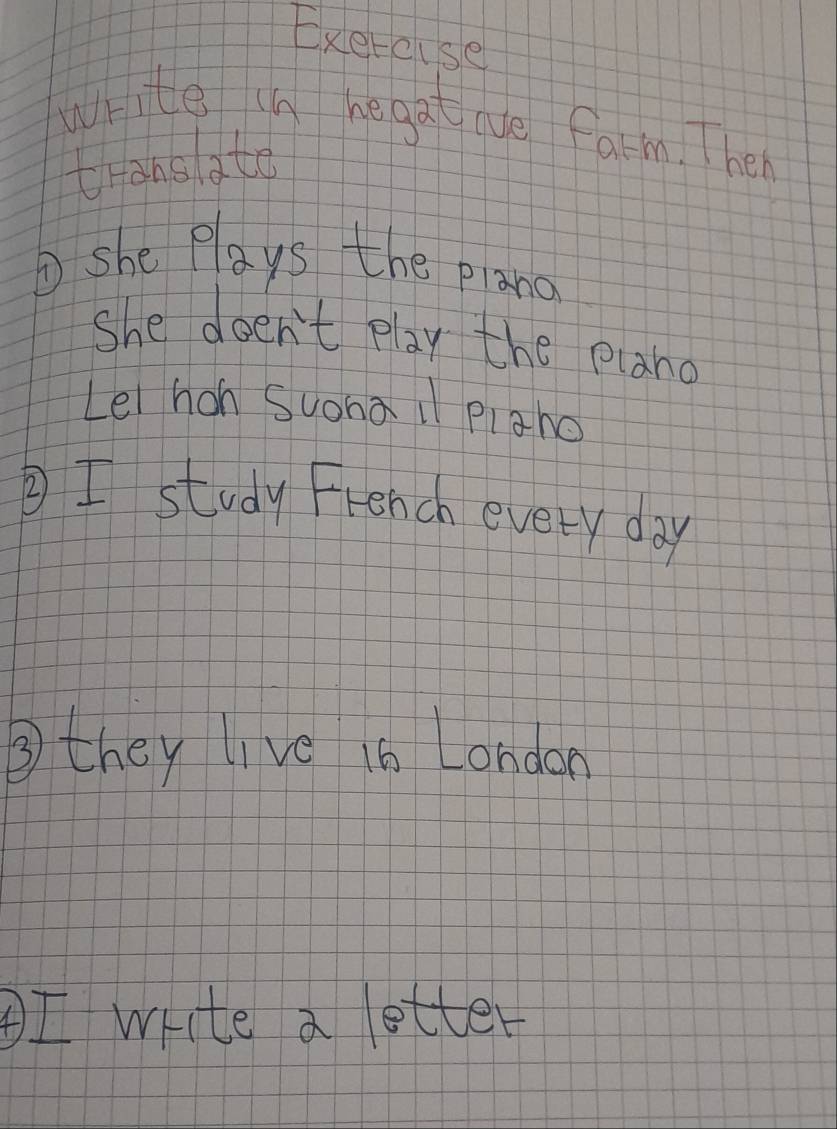 Exercise
Write in negative Form. Then
translate
1) she Plays the piano
She doen't play the piano
Lei non suona il piano
2) I study French every day
3) they live in London
4) I write a letter